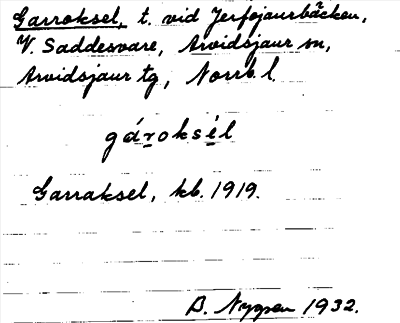 Garroksel, t. vid Jerfojaurbäcken,
V. Saddesvare, Arvidsjaur sn,
Arvidsjaur tg, Norrb. l.
gároksèl
Garraksel, kb. 1919.
B. Nygren 1932.